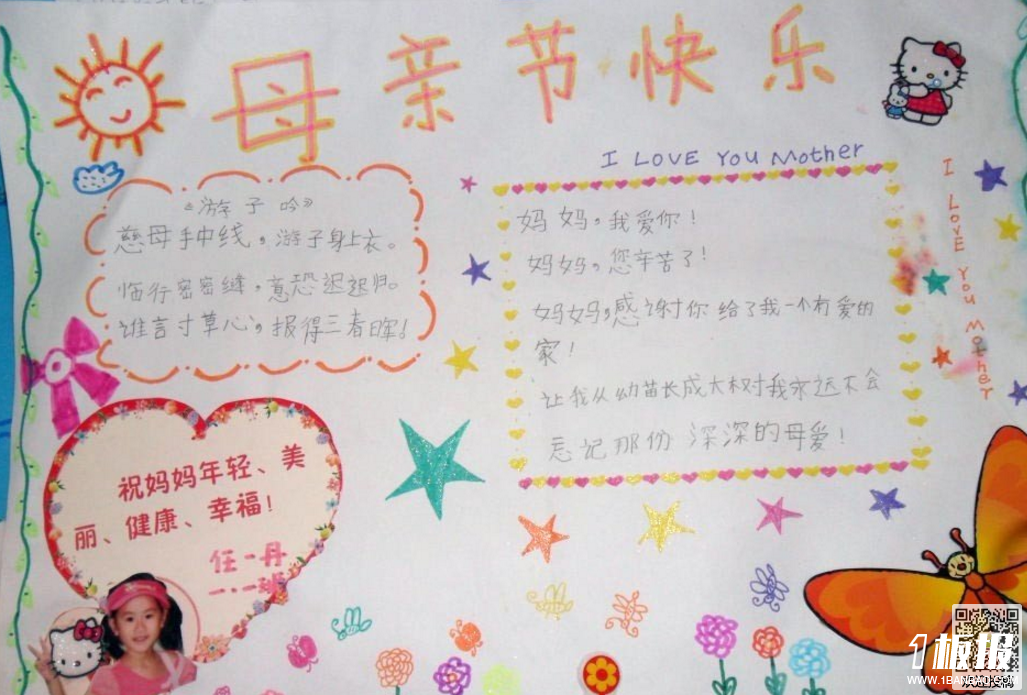 母亲节快乐
I LOVE YOU Mother
《游子吟》
慈母手中线，游子身上衣。
临行密密缝，意恐迟迟归。
谁言寸草心，报得三春晖！
妈妈，我爱你！
妈妈，您辛苦了！
妈妈，感谢你给了我一个有爱的
家！
让我从幼苗长成大树对我永远不会
忘记那份深深的母爱！
I LOVE YOU Mother
祝妈妈年轻、美
丽、健康、幸福！
任一丹
一.一班
1板报
WWW.1BANBAO.COM
欢迎投稿